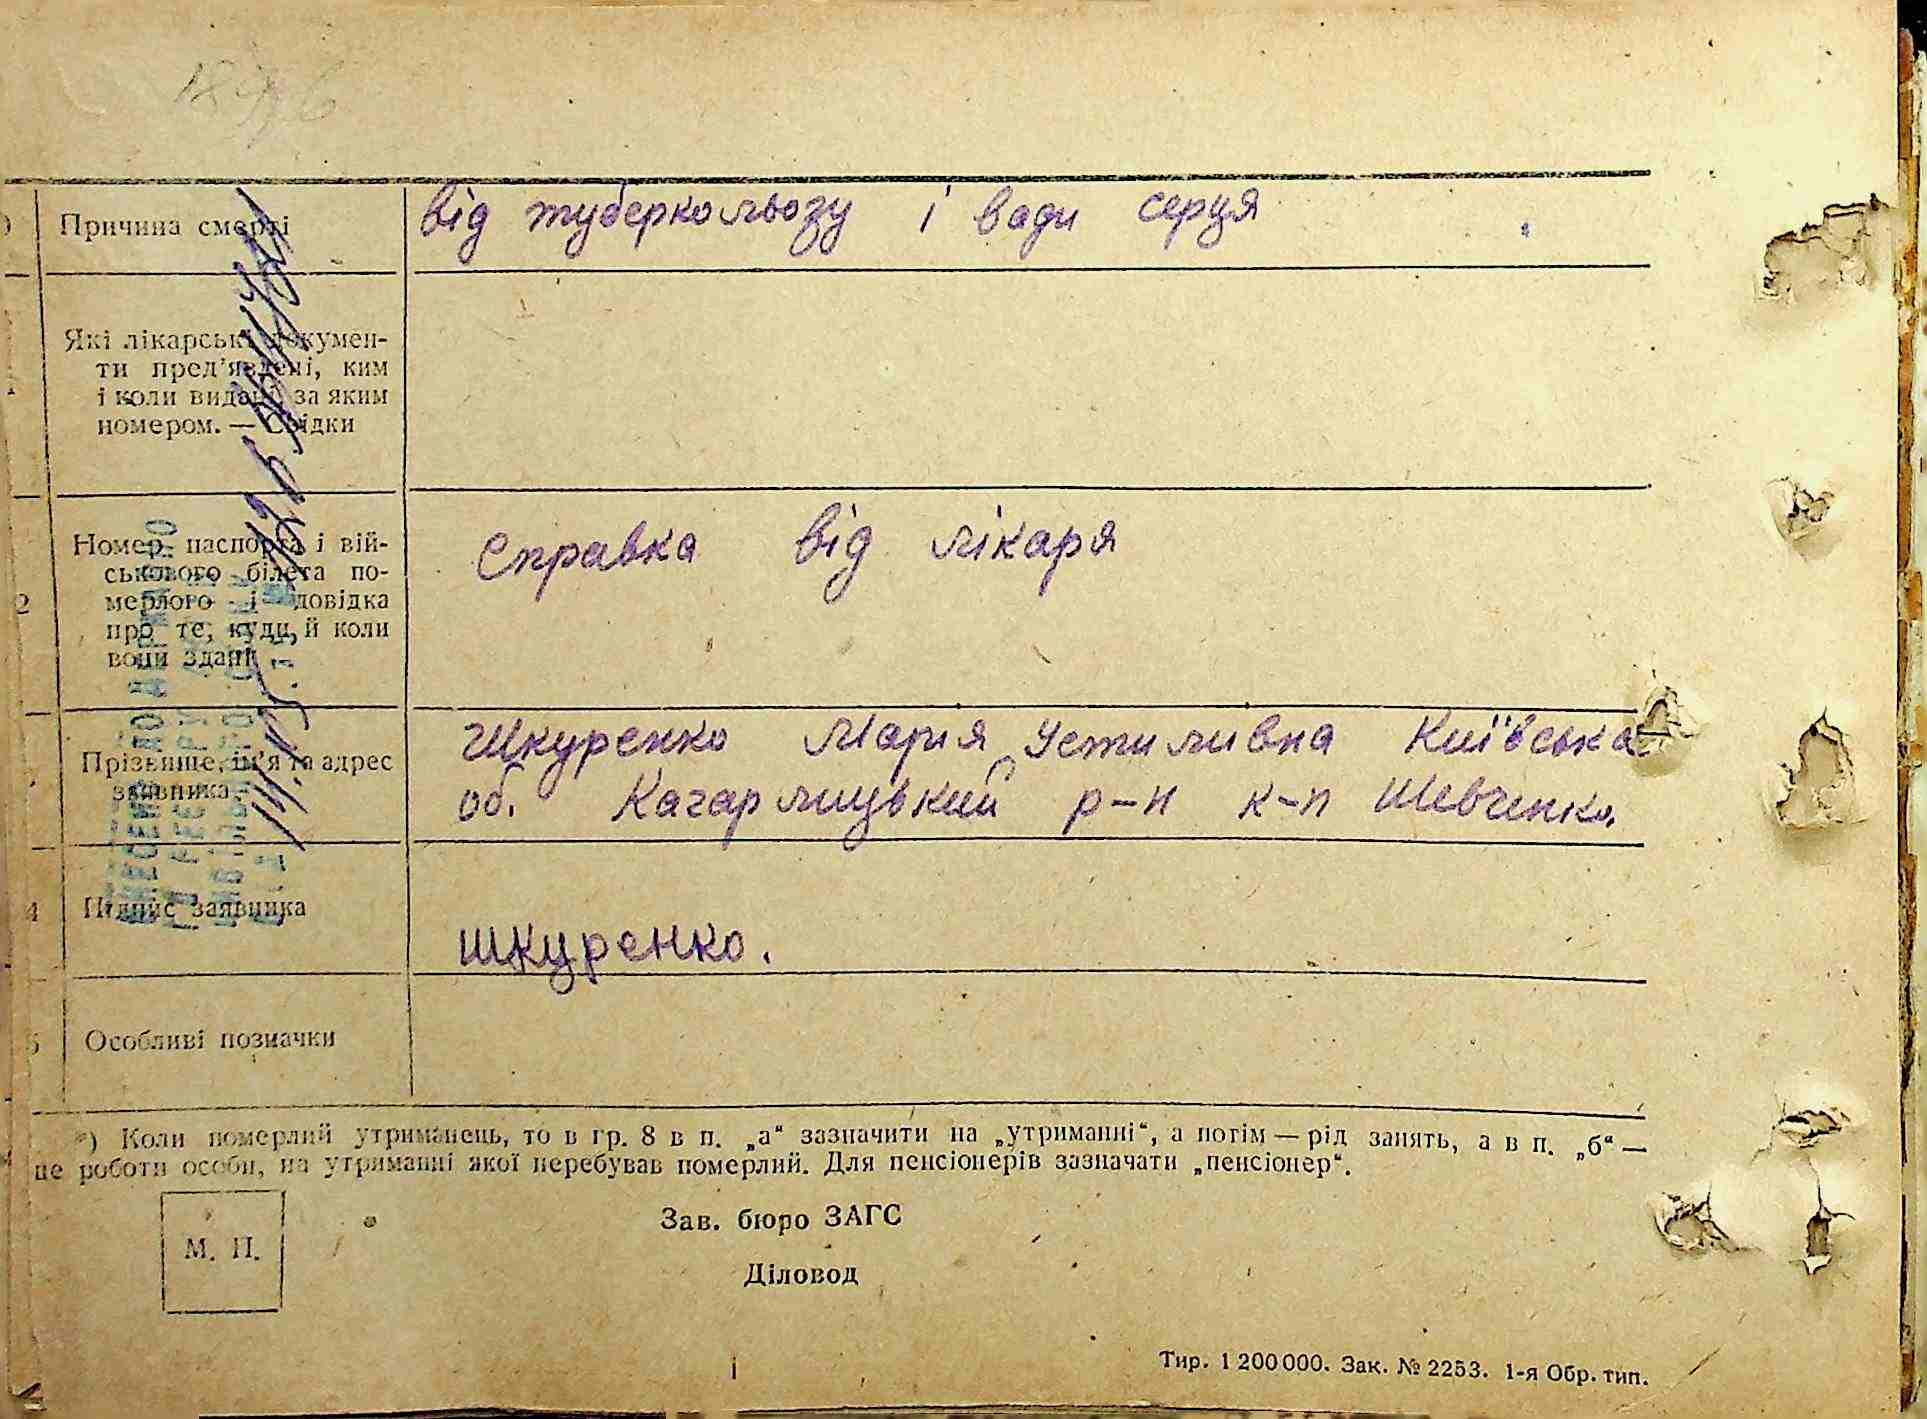 Причина смерті
від туберкольозу і вади серця
Які лікарські докумен-
ти пред’явлені, ким
і коли видані за яким
номером. — Свідки
2
Номер паспорта і вій-
ськового білета по-
мерлого і довідка
про те, куди й коли
вони здані
Справка від лікаря
Прізвище, ім’я та адрес
заявника
Шкуренко Марія Устимивна Київська
об. Кагарлицький р-н к-п Шевченко.
4
Підпис заявника
шкуренко.
5
Особливі позначки
*) Коли померлий утриманець, то в гр. 8 в п. „а“ зазначити на „утриманні“, а потім — рід занять, а в п. „б“ —
це роботи особи, на утриманні якої перебував померлий. Для пенсіонерів зазначати „пенсіонер“.
М. П.
Зав. бюро ЗАГС
Діловод
Тир. 1 200 000. Зак. № 2253. 1-я Обр. тип.